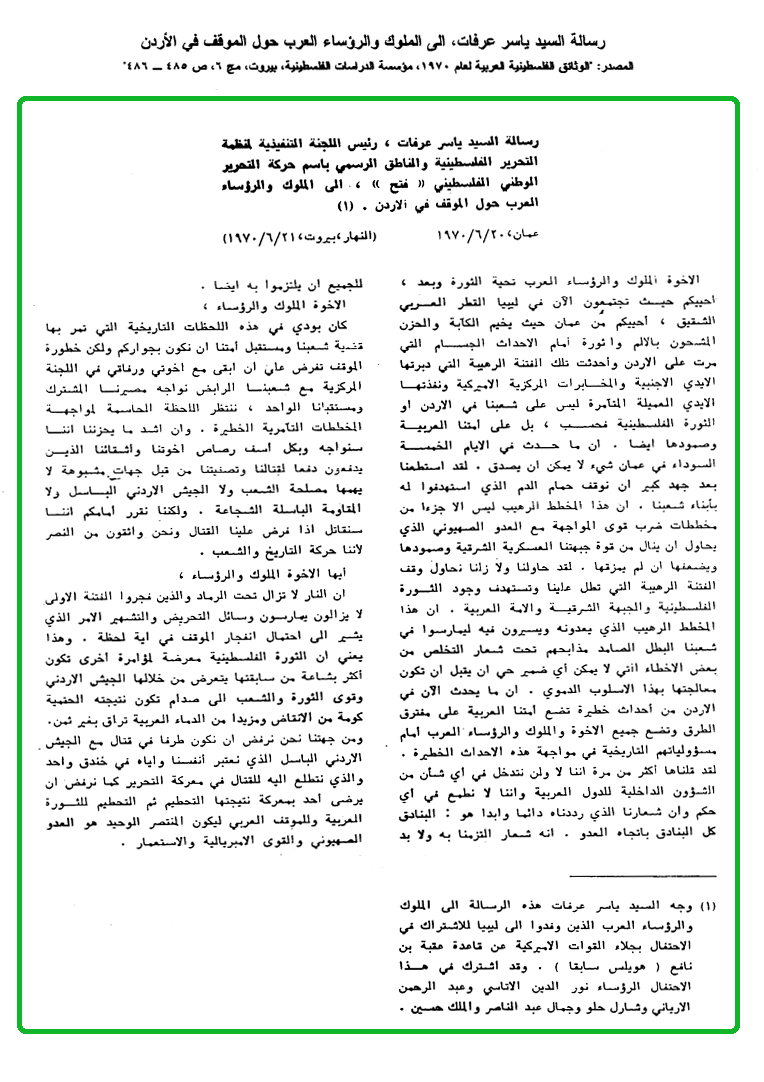 رسالة السيد ياسر عرفات، الى الملوك والرؤساء العرب حول الموقف في الأردن
المصدر: "الوثائق الفلسطينية العربية لعام ١٩٧٠، مؤسسة الدراسات الفلسطينية، بيروت، مج ٦، ص ٤٨٥ — ٤٨٦"
رسالة السيد ياسر عرفات ، رئيس اللجنة التنفيذية لمنظمة
التحرير الفلسطينية والناطق الرسمي باسم حركة التحرير
الوطني الفلسطيني « فتح » ، الى الملوك والرؤساء
العرب حول الموقف في الاردن . (١)
عمان، ١٩٧٠/٦/٢٠ (النهار، بيروت، ١٩٧٠/٦/٢١)
الاخوة الملوك والرؤساء العرب تحية الثورة وبعد ،
احييكم حيث تجتمعون الآن في ليبيا القطر العربي
الشقيق ، أحييكم من عمان حيث يخيم الكآبة والحزن
المشحون بالالم واثورة أمام الاحداث الجسام التي
مرت على الاردن وأحدثت تلك الفتنة الرهيبة التي دبرتها
الايدي الاجنبية والمخابرات المركزية الاميركية ونفذتها
الايدي العميلة المتآمرة ليس على شعبنا في الاردن او
الثورة الفلسطينية فحسب ، بل على أمتنا العربية
وصمودها ايضا . ان ما حدث في الايام الخمسة
السوداء في عمان شيء لا يمكن ان يصدق . لقد استطعنا
بعد جهد كبير ان نوقف حمام الدم الذي استهدفوا له
بأبناء شعبنا . ان هذا المخطط الرهيب ليس الا جزءا من
مخططات ضرب قوى المواجهة مع العدو الصهيوني الذي
يحاول ان ينال من قوة جبهتنا العسكرية الشرقية وصمودها
ويضعفها ان لم يمزقها . لقد حاولنا ولا زلنا نحاول وقف
الفتنة الرهيبة التي تطل علينا وتستهدف وجود الثورة
الفلسطينية والجبهة الشرقية والامة العربية . ان هذا
المخطط الرهيب الذي يعدونه ويسيرون فيه ليمارسوا في
شعبنا البطل الصامد مذابحهم تحت شعار التخلص من
بعض الاخطاء التي لا يمكن أي ضمير حي ان يقبل ان تكون
معالجتها بهذا الاسلوب الدموي . ان ما يحدث الآن في
الاردن من أحداث خطيرة تضع أمتنا العربية على مفترق
الطرق وتضع جميع الاخوة والملوك والرؤساء العرب أمام
مسؤولياتهم التاريخية في مواجهة هذه الاحداث الخطيرة .
لقد قلناها أكثر من مرة اننا لا ولن نتدخل في أي شأن من
الشؤون الداخلية للدول العربية واننا لا نطمع في أي
حكم وان شعارنا الذي رددناه دائما وابدا هو : البنادق
كل البنادق باتجاه العدو . انه شعار التزمنا به ولا بد
للجميع ان يلتزموا به ايضا .
الاخوة الملوك والرؤساء ،
كان بودي في هذه اللحظات التاريخية التي تمر بها
قضية شعبنا ومستقبل أمتنا ان نكون بجواركم ولكن خطورة
الموقف تفرض علي ان ابقى مع اخوتي ورفاقي في اللجنة
المركزية مع شعبنا الرابض نواجه مصيرنا المشترك
ومستقبلنا الواحد ، ننتظر اللحظة الحاسمة لمواجهة
المخططات التآمرية الخطيرة . وان اشد ما يحزننا اننا
سنواجه وبكل أسف رصاص اخوتنا واشقائنا الذين
يدفعون دفعا لقتالنا وتصفيتنا من قبل جهات مشبوهة لا
يهمها مصلحة الشعب ولا الجيش الاردني الباسل ولا
المقاومة الباسلة الشجاعة . ولكننا نقرر أمامكم اننا
سنقاتل اذا فرض علينا القتال ونحن واثقون من النصر
لأننا حركة التاريخ والشعب .
أيها الاخوة الملوك والرؤساء ،
ان النار لا تزال تحت الرماد والذين فجروا الفتنة الاولى
لا يزالون يمارسون وسائل التحريض والتشهير الامر الذي
يشير الى احتمال انفجار الموقف في اية لحظة . وهذا
يعني ان الثورة الفلسطينية معرضة لمؤامرة أخرى تكون
أكثر بشاعة من سابقتها يتعرض من خلالها الجيش الاردني
وقوى الثورة والشعب الى صدام تكون نتيجته الحتمية
كومة من الانقاض ومزيدا من الدماء العربية تراق بغير ثمن.
ومن جهتنا نحن نرفض ان نكون طرفا في قتال مع الجيش
الاردني الباسل الذي نعتبر أنفسنا واياه في خندق واحد
والذي نتطلع اليه للقتال في معركة التحرير كما نرفض ان
يرضى أحد بمعركة نتيجتها التحطيم ثم التحطيم للثورة
العربية وللموقف العربي ليكون المنتصر الوحيد هو العدو
الصهيوني والقوى الامبريالية والاستعمار .
(١) وجه السيد ياسر عرفات هذه الرسالة الى الملوك
والرؤساء العرب الذين وفدوا الى ليبيا للاشتراك في
الاحتفال بجلاء القوات الاميركية عن قاعدة عقبة بن
نافع ( هويلس سابقا ) . وقد اشترك في هذا
الاحتفال الرؤساء نور الدين الاتاسي وعبد الرحمن
الارياني وشارل حلو وجمال عبد الناصر والملك حسين .